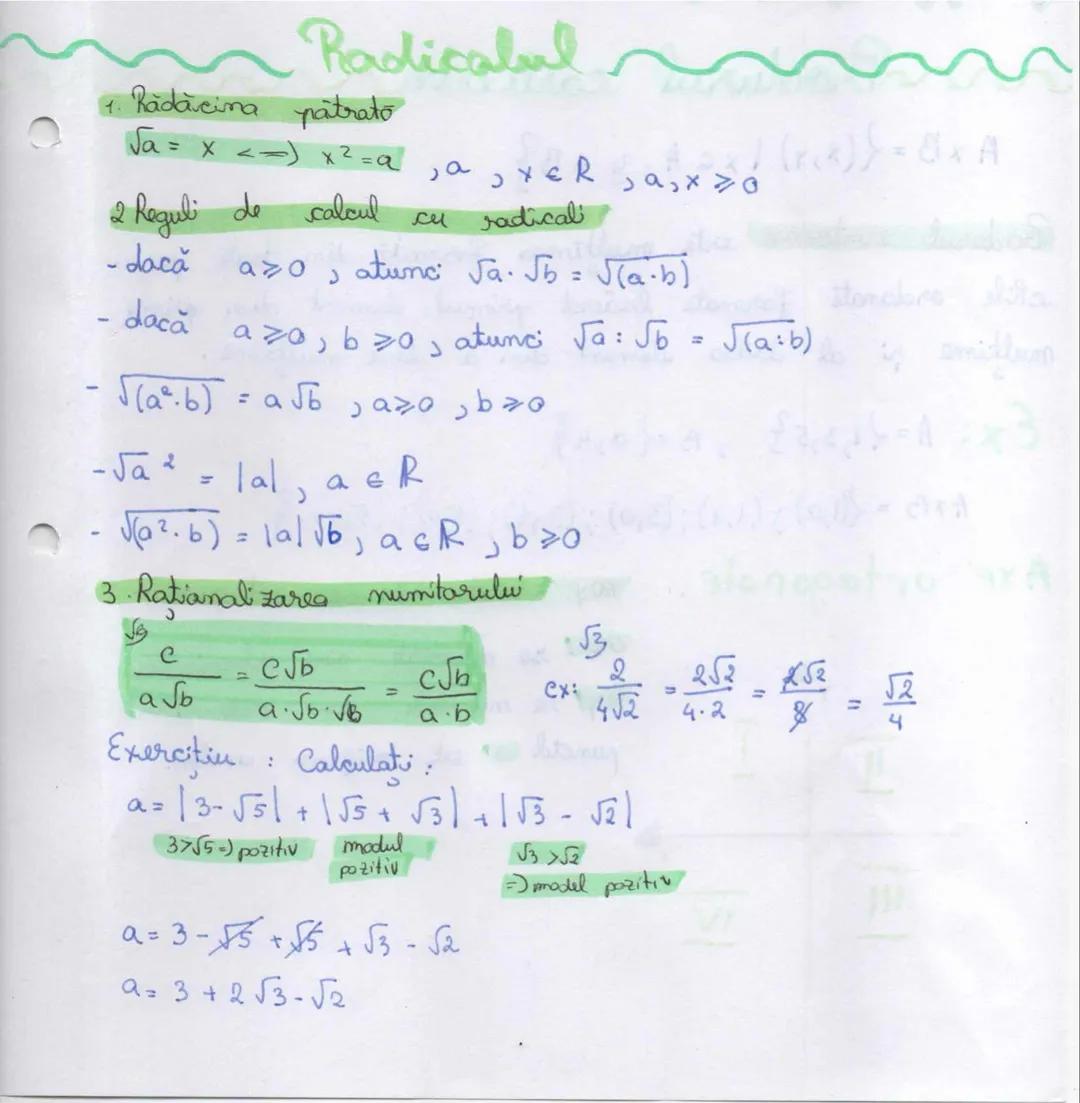 Radicalul
1. Rădăcina pătrată
√a = x <=> x² = a , a , x ∈ R , a, x ≥ 0
2 Reguli de calcul cu radicali
- dacă a ≥ 0 , atunci √a · √b = √(a·b)
- dacă a ≥ 0, b ≥ 0 , atunci √a : √b = √(a:b)
- √(a²·b) = a√b , a ≥ 0 , b ≥ 0
- √a² = |a| , a ∈ R
- √(a²·b) = |a|√b , a ∈ R , b ≥ 0
3. Raționalizarea numitorului
√b) c / a√b = c√b / a·√b·√b = c√b / a·b
ex: √3 2 / 4√2 = 2√2 / 4·2 = 2√2 / 8 = √2 / 4
Exercițiu : Calculați :
a = |3 - √5| + |√5 + √3| + |√3 - √2|
3>√5 => pozitiv modul √3 >√2
pozitiv => model pozitiv
a = 3 - √5 + √5 + √3 - √2
a = 3 + 2√3 - √2